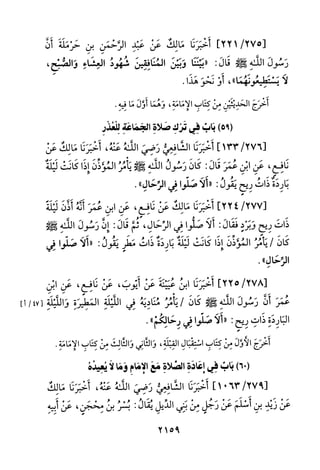 [٢٢١/٢٧٥] أَخْبَرَنَا مَالِكٌ عَنْ عَبْدِ الرَّحْمَنِ بنِ حَرْمَلَةَ أَنَّ
رَسُولَ اللَّهِ ﷺ قَالَ: «بَيْنَنَا وَبَيْنَ المُنَافِقِينَ شُهُودُ العِشَاءِ وَالصُّبْحِ،
لَا يَسْتَطِيعُونَهُمَا»، أَوْ نَحْوَ هَذَا.
أَخْرَجَ الحَدِيثَيْنِ مِنْ كِتَابِ الإِمَامَةِ، وَهُمَا أَوَّلُ مَا فِيهِ.
(٥٩) بَابٌ فِي تَرْكِ صَلَاةِ الجَمَاعَةِ لِلْعُذْرِ
[١٣٣/٢٧٦] أَخْبَرَنَا الشَّافِعِيُّ رَضِيَ اللَّهُ عَنْهُ، أَخْبَرَنَا مَالِكٌ عَنْ
نَافِعٍ، عَنِ ابْنِ عُمَرَ قَالَ: كَانَ رَسُولُ اللَّهِ ﷺ يَأْمُرُ المُؤَذِّنَ إِذَا كَانَتْ لَيْلَةٌ
بَارِدَةٌ ذَاتُ رِيحٍ يَقُولُ: «أَلَا صَلُّوا فِي الرِّحَالِ».
[٢٢٤/٢٧٧] أَخْبَرَنَا مَالِكٌ عَنْ نَافِعٍ، عَنِ ابنِ عُمَرَ أَنَّهُ أَذَّنَ لَيْلَةً
ذَاتَ رِيحٍ وَبَرْدٍ فَقَالَ: أَلَا صَلُّوا فِي الرِّحَالِ، ثُمَّ قَالَ: إِنَّ رَسُولَ اللَّهِ ﷺ
كَانَ / يَأْمُرُ المُؤَذِّنَ إِذَا كَانَتْ لَيْلَةٌ بَارِدَةٌ ذَاتُ مَطَرٍ يَقُولُ: «أَلَا صَلُّوا فِي
الرِّحَالِ».
[٢٢٥/٢٧٨] أَخْبَرَنَا ابنُ عُيَيْنَةَ عَنْ أَيُّوبَ، عَنْ نَافِعٍ، عَنِ ابْنِ
عُمَرَ أَنَّ رَسُولَ اللَّهِ ﷺ كَانَ / يَأْمُرُ مُنَادِيَهُ فِي اللَّيْلَةِ المَطِيرَةِ وَاللَّيْلَةِ [١٧/أ]
البَارِدَةِ ذَاتِ رِيحٍ: «أَلَا صَلُّوا فِي رِحَالِكُمْ».
أَخْرَجَ الأَوَّلَ مِنْ كِتَابِ اسْتِقْبَالِ القِبْلَةِ، وَالثَّانِي وَالثَّالِثَ مِنْ كِتَابِ الإِمَامَةِ.
(٦٠) بَابٌ فِي إِعَادَةِ الصَّلَاةِ مَعَ الإِمَامِ وَمَا لَا يُعِيدُهُ
[١٠٦٣/٢٧٩] أَخْبَرَنَا الشَّافِعِيُّ رَضِيَ اللَّهُ عَنْهُ، أَخْبَرَنَا مَالِكٌ
عَنْ زَيْدِ بنِ أَسْلَمَ عَنْ رَجُلٍ مِنْ بَنِي الدِّيلِ يُقَالُ: بُسْرُ بنُ مِحْجَنٍ، عَنْ أَبِيهِ
٢١٥٩